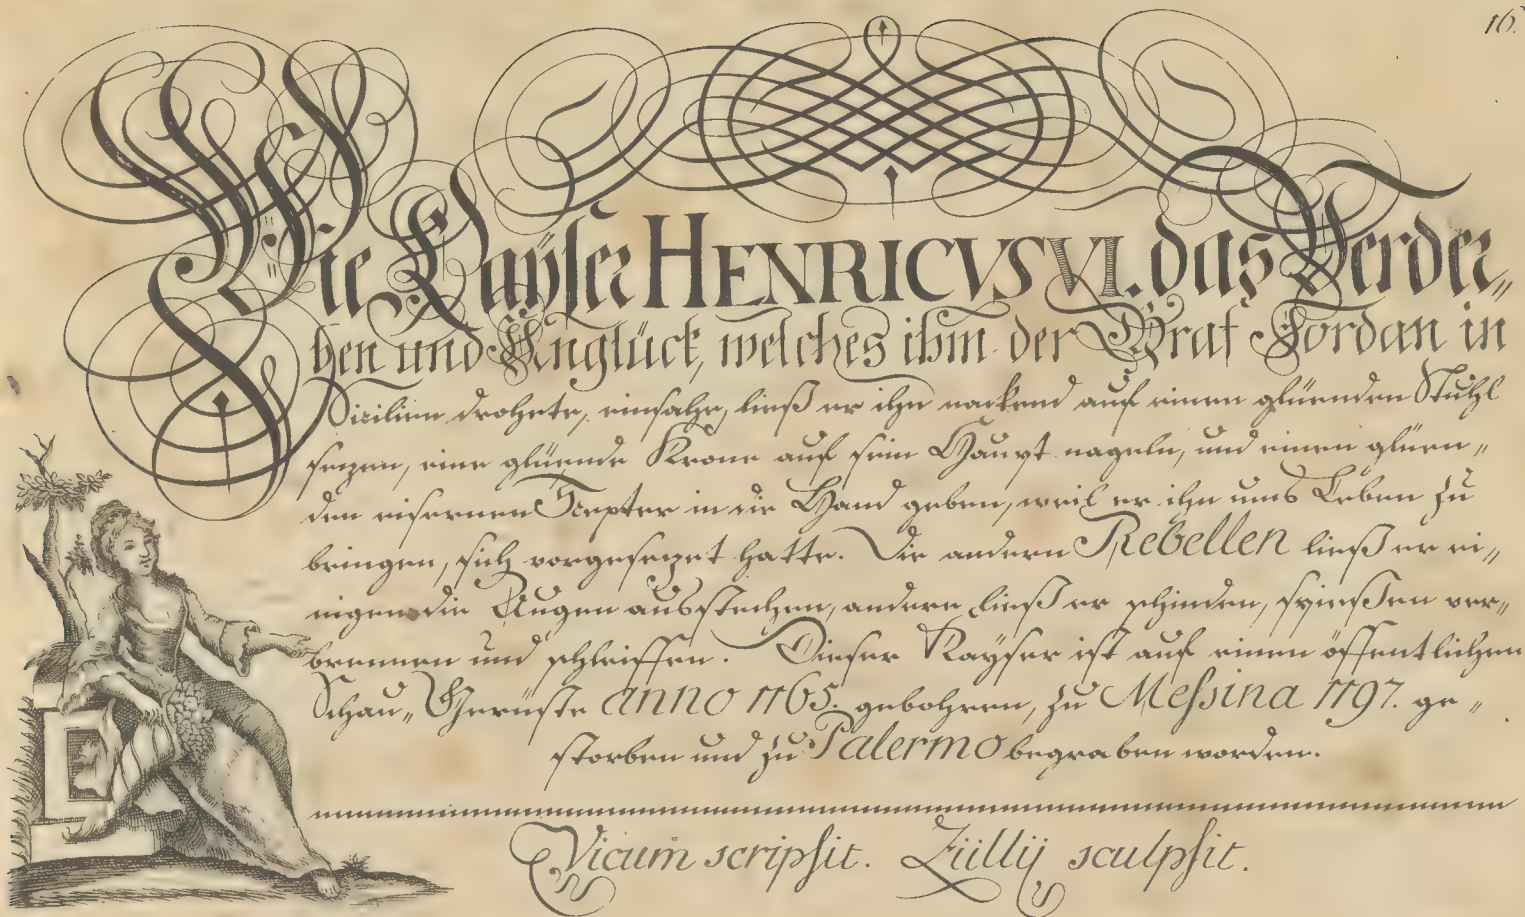 16.
Wie Kayser HENRICVS VI. das Verder„
ben und Unglück, welches ihm der Graf Jordan in
Sicilien drohete, einsahe, ließ er ihn nackend auf einen glüenden Stuhl
sezen, eine glüende Krone auf sein Haupt nageln, und einen glüen„
den eisernen Scepter in die Hand geben, weil er ihn ums Leben zu
bringen, sich vorgesezet hatte. Die andern Rebellen ließ er ei„
nigen die Augen ausstechen, andere ließ er schinden, spiessen ver„
brennen und schleiffen. Dieser Kayser ist auf einen öffentlichen
Schau„Gerüste anno 1165. gebohren, zu Meßina 1197. ge„
storben und zu Palermo begraben worden.
Vicum scripsit. Züllij sculpsit.